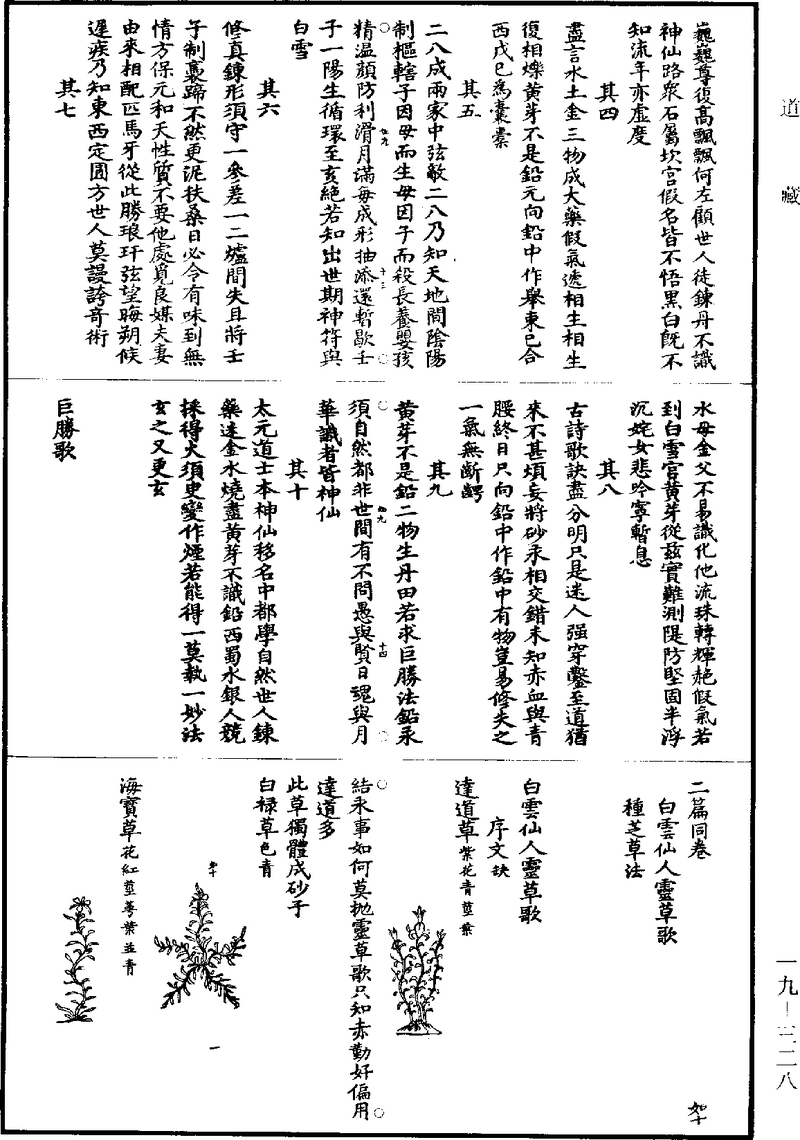 道藏
巍巍尊復高飄飄何左顧世人徒鍊丹不識
神仙路衆石屬坎宮假名皆不悟黑白旣不
知流年亦虛度
其四
盡言水土金三物成大藥假氣遞相生相生
復相爍黃芽不是鉛元向鉛中作舉東已合
西戊己爲囊橐
其五
二八成兩家中弦敵二八乃知天地間陰陽
制樞轄子因母而生母因子而殺長養嬰孩
精溫顔防利滑月滿每成形抽添還暫歇壬
子一陽生循環至亥絕若知出世期神符與
白雪
其六
修真鍊形須守一參差一二爐間失且將壬
子制裹蹄不然更泥扶桑日必令有味到無
情方保元和天性質不要他處覓良媒夫妻
由來相配匹馬牙從此勝琅玕弦望晦朔候
遲疾乃知東西定圓方世人莫謾誇奇術
其七
水母金父不易識化他流珠轉輝赩假氣若
到白雪宮黃芽從茲實難測隄防堅固半浮
沉姹女悲吟寧暫息
其八
古詩歌訣盡分明只是迷人强穿鑿至道猶
來不甚煩妄將砂汞相交錯未知赤血與青
腰終日只向鉛中作鉛中有物豈易修失之
一氣無斷齶
其九
黃芽不是鉛二物生丹田若求巨勝法鉛汞
須自然都非世間有不問愚與賢日魂與月
華識者皆神仙
其十
太元道士本神仙移名中都學自然世人鍊
藥迷金水燒盡黃芽不識鉛西蜀水銀人競
採得火須臾變作煙若能得一莫執一妙法
玄之又更玄
巨勝歌
二篇同卷
白雲仙人靈草歌
種芝草法
白雲仙人靈草歌
序文缺
達道草紫花青莖葉
結汞事如何莫抛靈草歌只知赤勤好偏用
達道多
此草獨體成砂子
白禄草色青
海寶草花紅莖蕚葉並青
一九—三二八